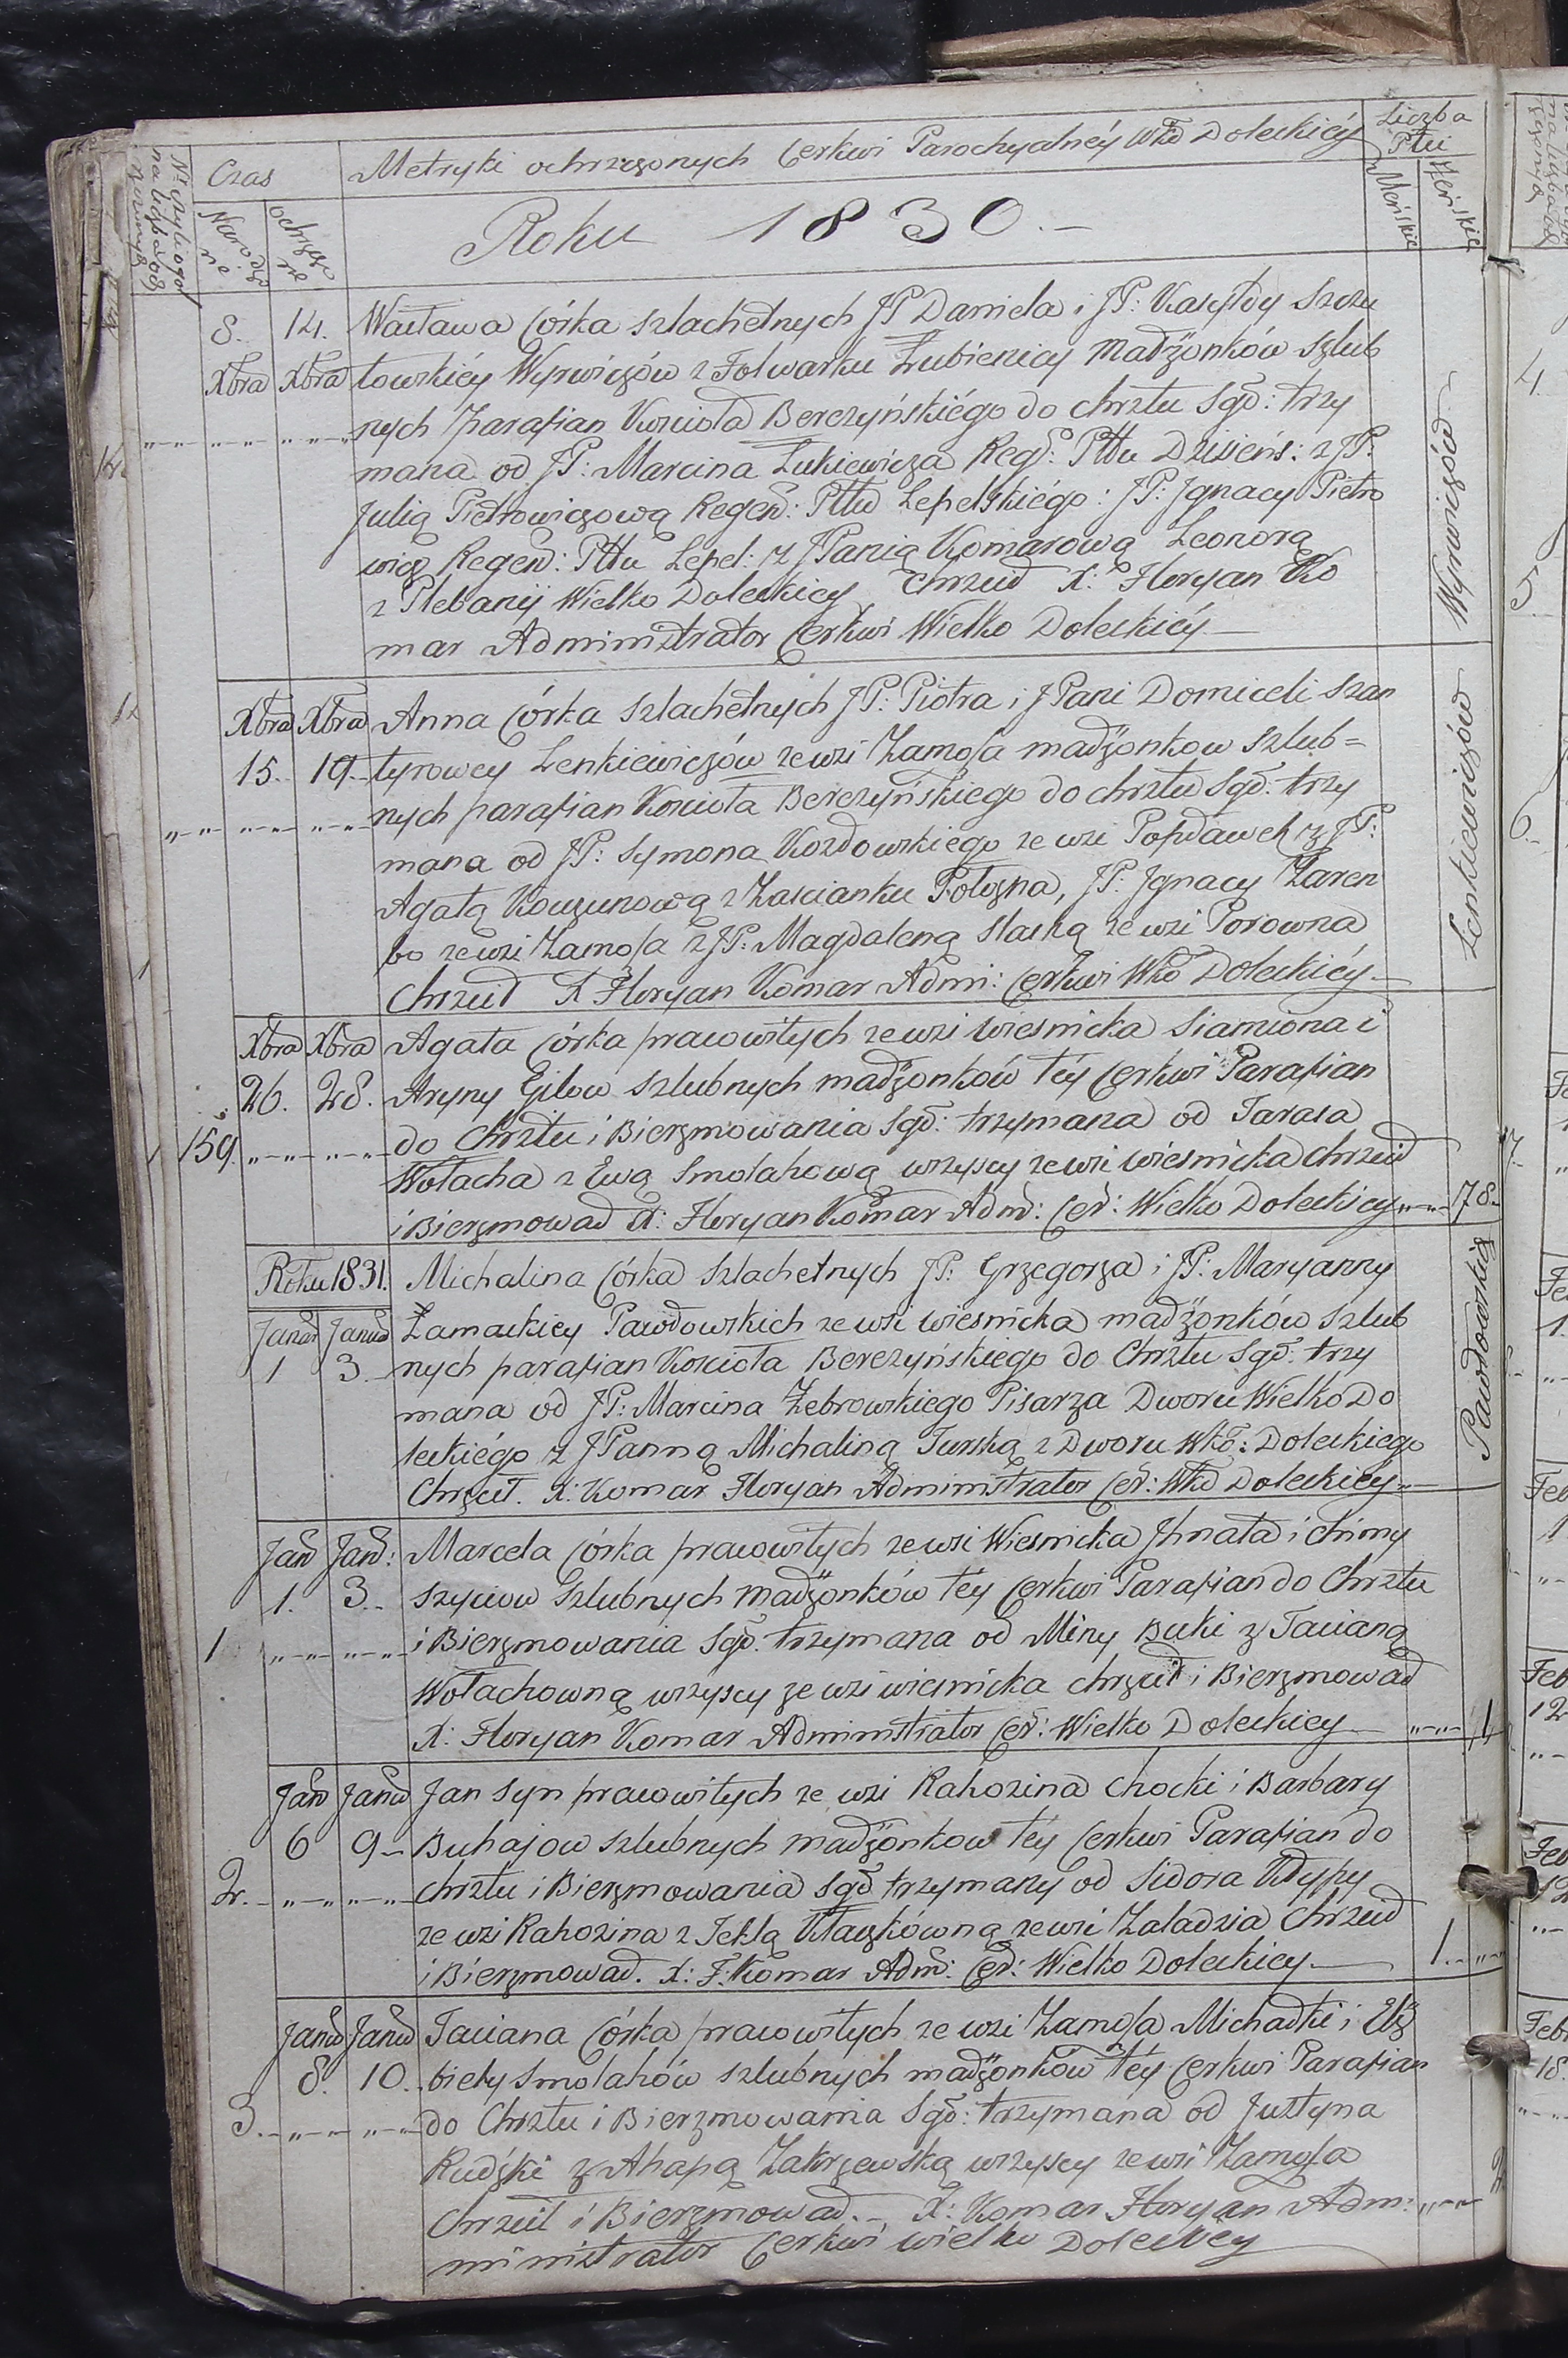 Czas Metryki ochrzczonych Cerkwi Parochyalnéy Wko Doleckiéy Liczba Płci
Narodze nie ochrzcze nie Męskie Żeńskie
Roku 1830.
8. 14. Wacława Córka szlachetnych JP Daniela i JP: Kasyldy Szczu
Xbra Xbra towskiéy Wyrwiczów z Folwarku Łubienicy małżonków szlub
nych parafian Kościoła Berezyńskiégo do chrztu sgo: trzy
mana od JP: Marcina Łukiewicza Reg: Pttu Dziseńs: z JP:
Julią Pietrowiczową Regen: Pttu Lepelskiégo: JP: Jgnacy Pietro
wicz Regen: Pttu Lepel: z JPanią Komarową Leonorą
z Plebanij Wielko Doleckiey Chrzcił X: Floryan Ko
mar Administrator Cerkwi Wielko Doleckiéy
Wyrwiczów
Xbra Xbra Anna Córka szlachetnych JP: Piotra i JPani Domiceli Szan
15. 19. tyrowey Lenkiewiczów ze wsi Zamosa małżonkow szlub=
nych parafian Kościoła Berezyńskiego do chrztu sgo: trzy
mana od JP: Symona Kozłowskiego ze wsi Popławek z JP:
Agatą Kouzunową z Zascianku Połozna, JP: Jgnacy Zaren
bo ze wsi Zamosa z JP: Magdaleną Slaską ze wsi Porowna
Chrzcił X Floryan Komar Admi: Cerkwi Wko Doleckiéy
Lenkiewiczów
Xbra Xbra Agata Córka pracowitych ze wsi wiesnicka Siamiona i
26. 28. Aryny Gilow szlubnych małżonków téy Cerkwi Parafian
159. do Chrztu i Bierzmowania sgo: trzymana od Tarasa
Wołacha z Ewą Smolahową wszyscy ze wsi wiesnicka chrzcił
i Bierzmował X: Floryan Komar Adm: Cer: Wielko Doleckiey 78.
Roku 1831. Michalina Córka szlachetnych JP: Grzegorza i JP: Maryanny
Januar Januar Łamackiey Pawłowskich ze wsi wiesnicka małżonków szlub
1 3. nych parafian Kościoła Berezyńskiego do Chrztu sgo: trzy
mana od JP: Marcina Żebrowskiego Pisarza Dworu Wielko Do
leckiégo z JPanną Michaliną Turską z Dworu Wko: Doleckiego
Chrzcił. X: Komar Floryan Administrator Cer: Wko Doleckiéy
Pawłowskich
Jan Jan: Marcela Córka pracowitych ze wsi Wiesnicka Jhnata i Chimy
1. 3. szycow szlubnych małżonków téy Cerkwi Parafian do Chrztu
1 i Bierzmowania sgo: trzymana od Miny Buki z Tacianą
Wołachowną wszyscy ze wsi wiesnicka chrzcił i Bierzmował
X: Floryan Komar Administrator Cer: Wielko Doleckiey 1
Jan Janu Jan syn pracowitych ze wsi Rahozina Chocki i Barbary
6 9 Buhajow szlubnych małżonkow téy Cerkwi Parafian do
2. chrztu i Bierzmowania sgo trzymany od Sidora Kłypy
ze wsi Rahozina z Teklą Kłaczkówną ze wsi Zaladzia Chrzcił
i Bierzmował. X: F: Komar Adm: Cer: Wielko Doleckiey 1.
Janu Janu Taciana Córka pracowitych ze wsi Zamosa Michałki i Elż
8. 10. biety Smolahów szlubnych małżonków téy Cerkwi Parafian
3. do Chrztu i Bierzmowania sgo: trzymana od Justyna
Rudźki z Ahapą Zakrzewską wszyscy ze wsi Zamosa
Chrzcił i Bierzmował. X: Komar Floryan Adm: 2
ministrator Cerkwi wielko Doleckey